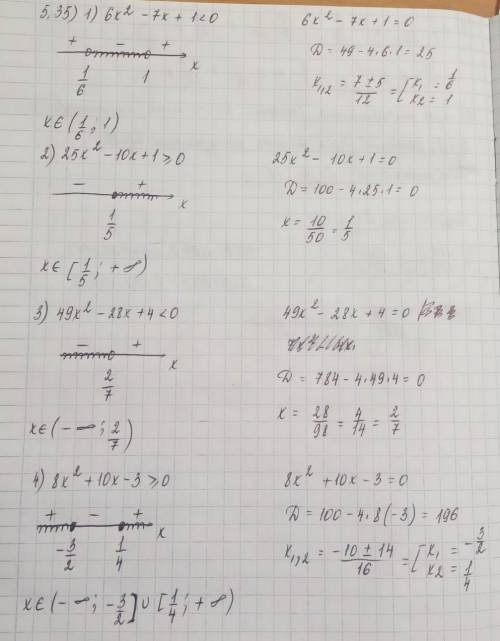 5,35) 1) 6x² - 7x + 1 < 0
6x² - 7x + 1 = 0
+ - +
1/6 1 x
D = 49 - 4·6·1 = 25
x₁,₂ = (7 ± 5)/12 = [x₁ = 1/6
x₂ = 1
x ∈ (1/6 ; 1)
2) 25x² - 10x + 1 ≥ 0
25x² - 10x + 1 = 0
- +
1/5 x
D = 100 - 4·25·1 = 0
x = 10/50 = 1/5
x ∈ [1/5 ; +∞)
3) 49x² - 28x + 4 < 0
49x² - 28x + 4 = 0
- +
2/7 x
D = 784 - 4·49·4 = 0
x = 28/98 = 4/14 = 2/7
x ∈ (-∞ ; 2/7)
4) 8x² + 10x - 3 ≥ 0
8x² + 10x - 3 = 0
+ - +
-3/2 1/4 x
D = 100 - 4·8(-3) = 196
x₁,₂ = (-10 ± 14)/16 = [x₁ = -3/2
x₂ = 1/4
x ∈ (-∞ ; -3/2] ∪ [1/4 ; +∞)